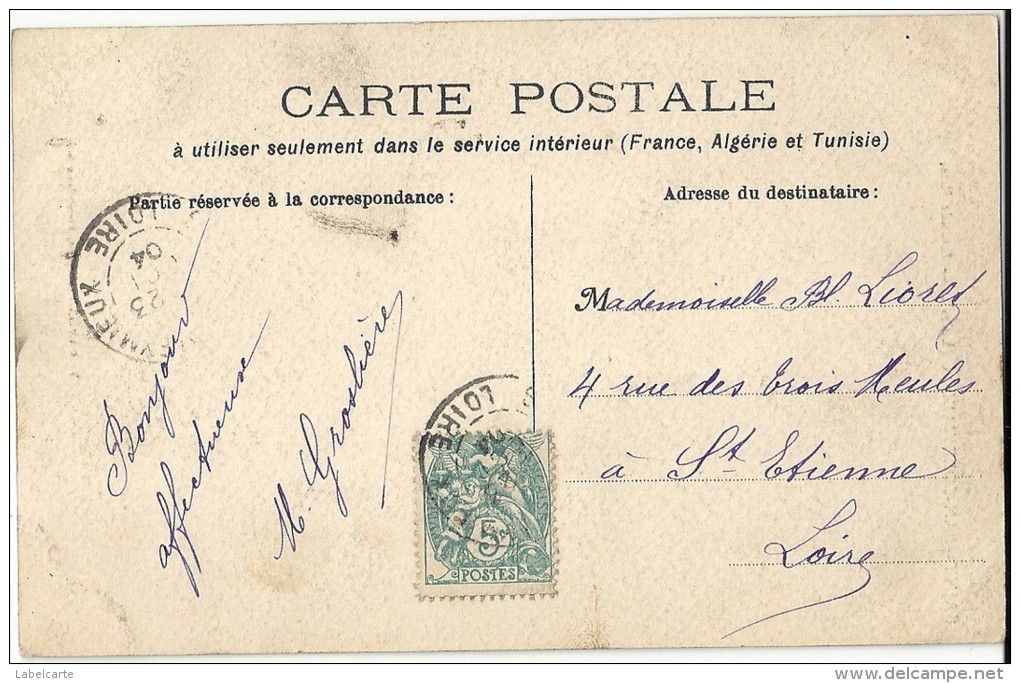 CARTE POSTALE
à utiliser seulement dans le service intérieur (France, Algérie et Tunisie)
Partie réservée à la correspondance :
Adresse du destinataire :
LOIRE
23
04
Bonjour
affectueux
M. Groslière
Mademoiselle Bl. Lioret
4 rue des trois Meules
à St Etienne
Loire
LOIRE
5
POSTES
Labelcarte
www.delcampe.net